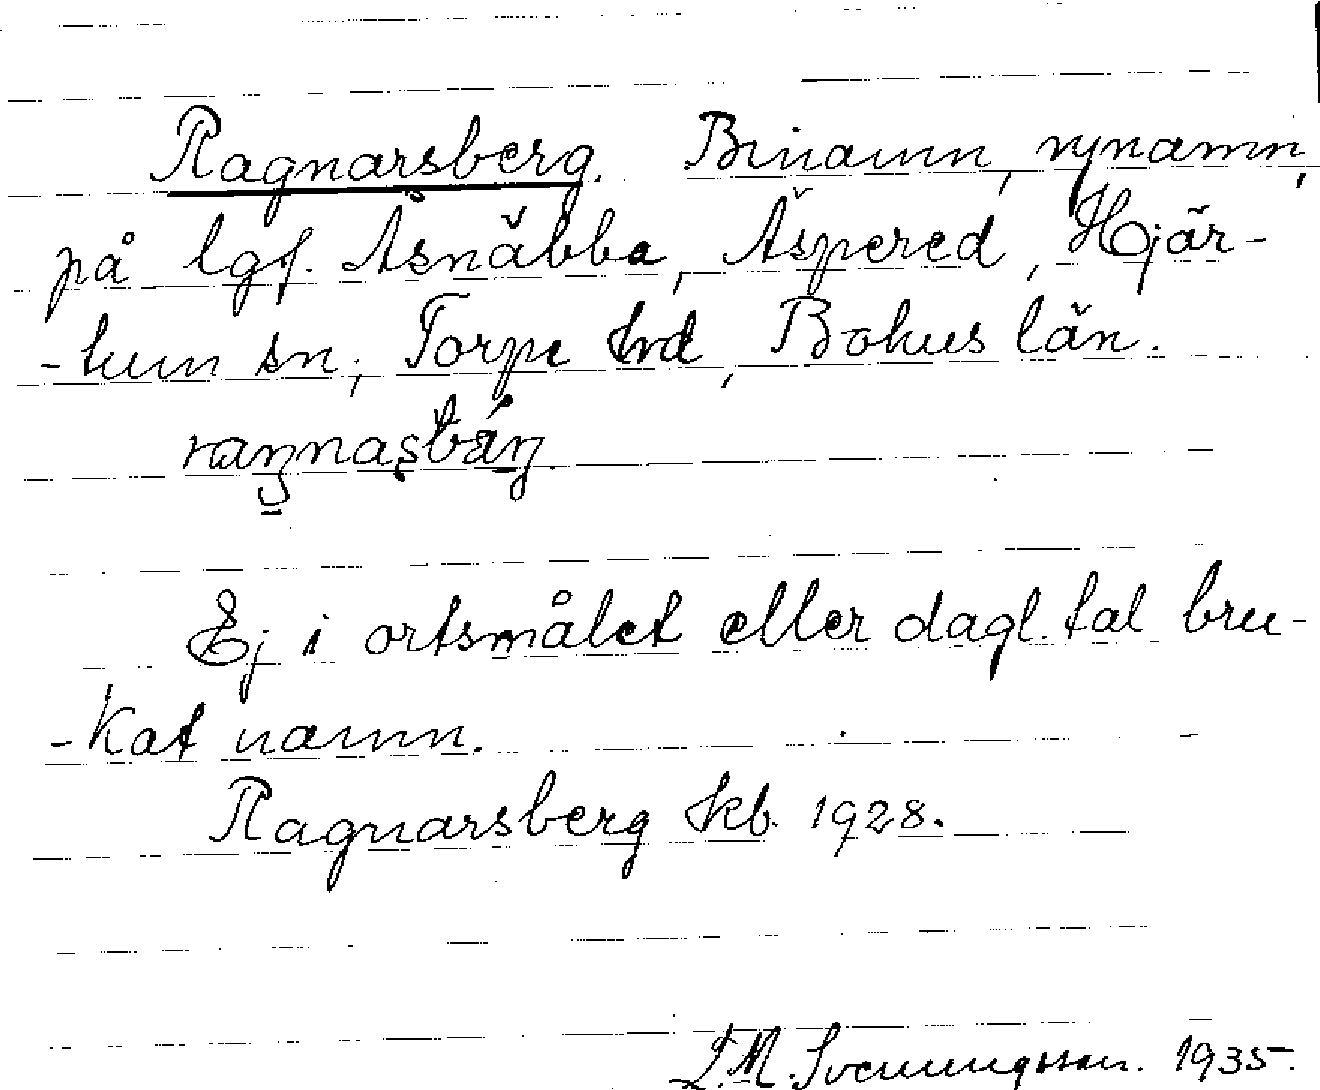 Ragnarsberg. Binamn, nynamn,
på lgf. Åsnäbba, Äspered, Hjär-
-tum sn, Torpe hd, Bohus län.
Ej i ortsmålet eller dagl. tal bru-
-kat namn.
Ragnarsberg kb. 1928.
L.M. Svenungsson. 1935.